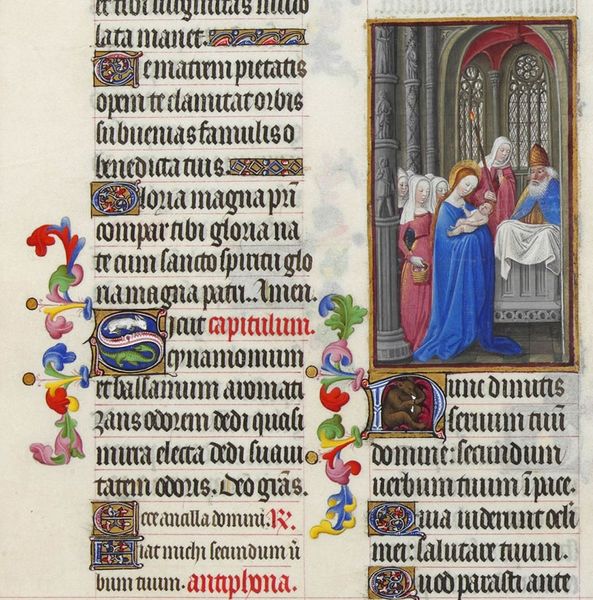 et tibi dignitas
lata manet.
Te matrem pietatis
opem te clamitat orbis
subuenias famulis o
benedicta tuis.
Gloria magna pr̄i
compar tibi gloria na
te cum sancto spiritu glo
ria magna patri. Amen.
Sicut capitulum.
cynamomum
et balsamum aromati
zans odorem dedi quasi
mirra electa dedi suaui
tatem odoris. Deo grās.
Ecce ancilla domini. R.
Fiat michi secundum ū
bum tuum. antiphona.
Nunc dimitis
seruum tuū
domine: secundum
uerbum tuum ī pace.
Quia uiderunt ocli
mei: salutare tuum.
Quod parasti ante